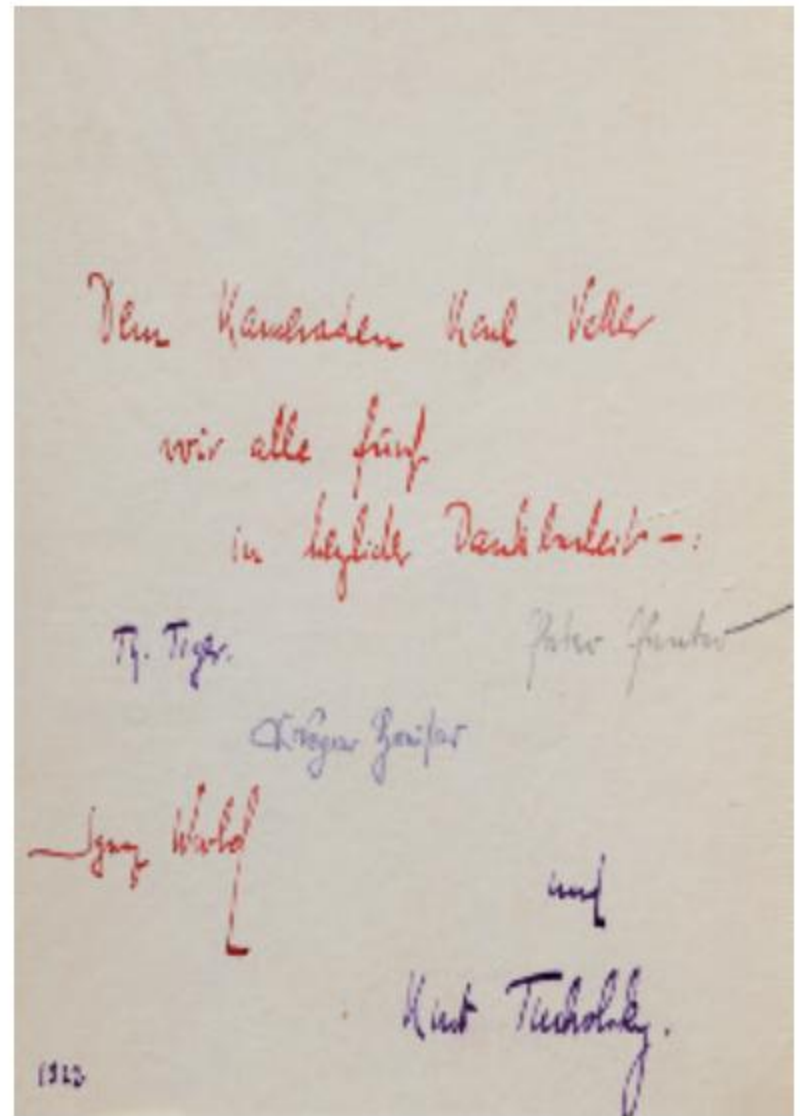 Dem Kameraden Karl Vetter
wir alle fünf
in herzlicher Dankbarkeit –:
Th. Tiger.
Peter Panter
Kaspar Hauser
Ignaz Wrobel
und
Kurt Tucholsky.
1923